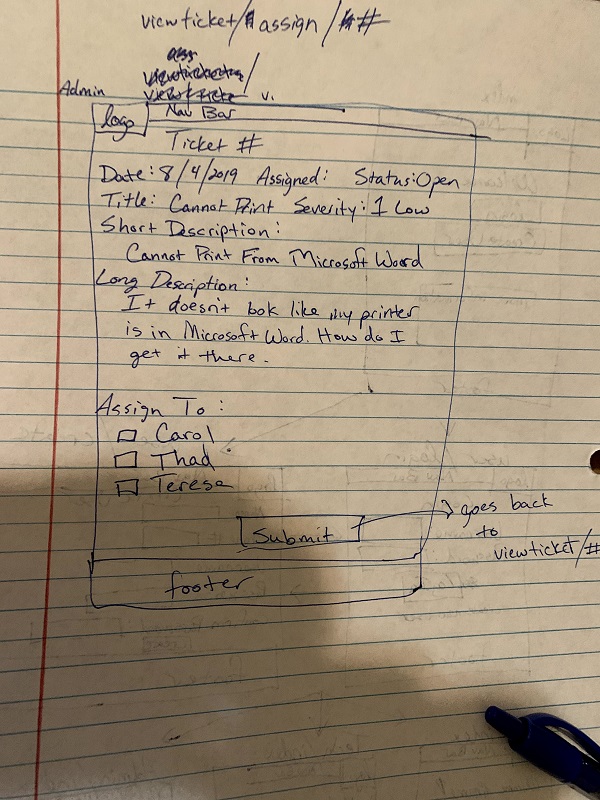 viewticket/assign/##
ass
viewticket
Admin v.
logo Nav Bar
Ticket #
Date: 8/4/2019 Assigned: Status: Open
Title: Cannot Print Severity: 1 Low
Short Description:
Cannot Print From Microsoft Word
Long Description:
It doesn't look like my printer
is in Microsoft Word. How do I
get it there.
Assign To:
Carol
Thad
Teresa
Submit
goes back
to
viewticket/#
footer